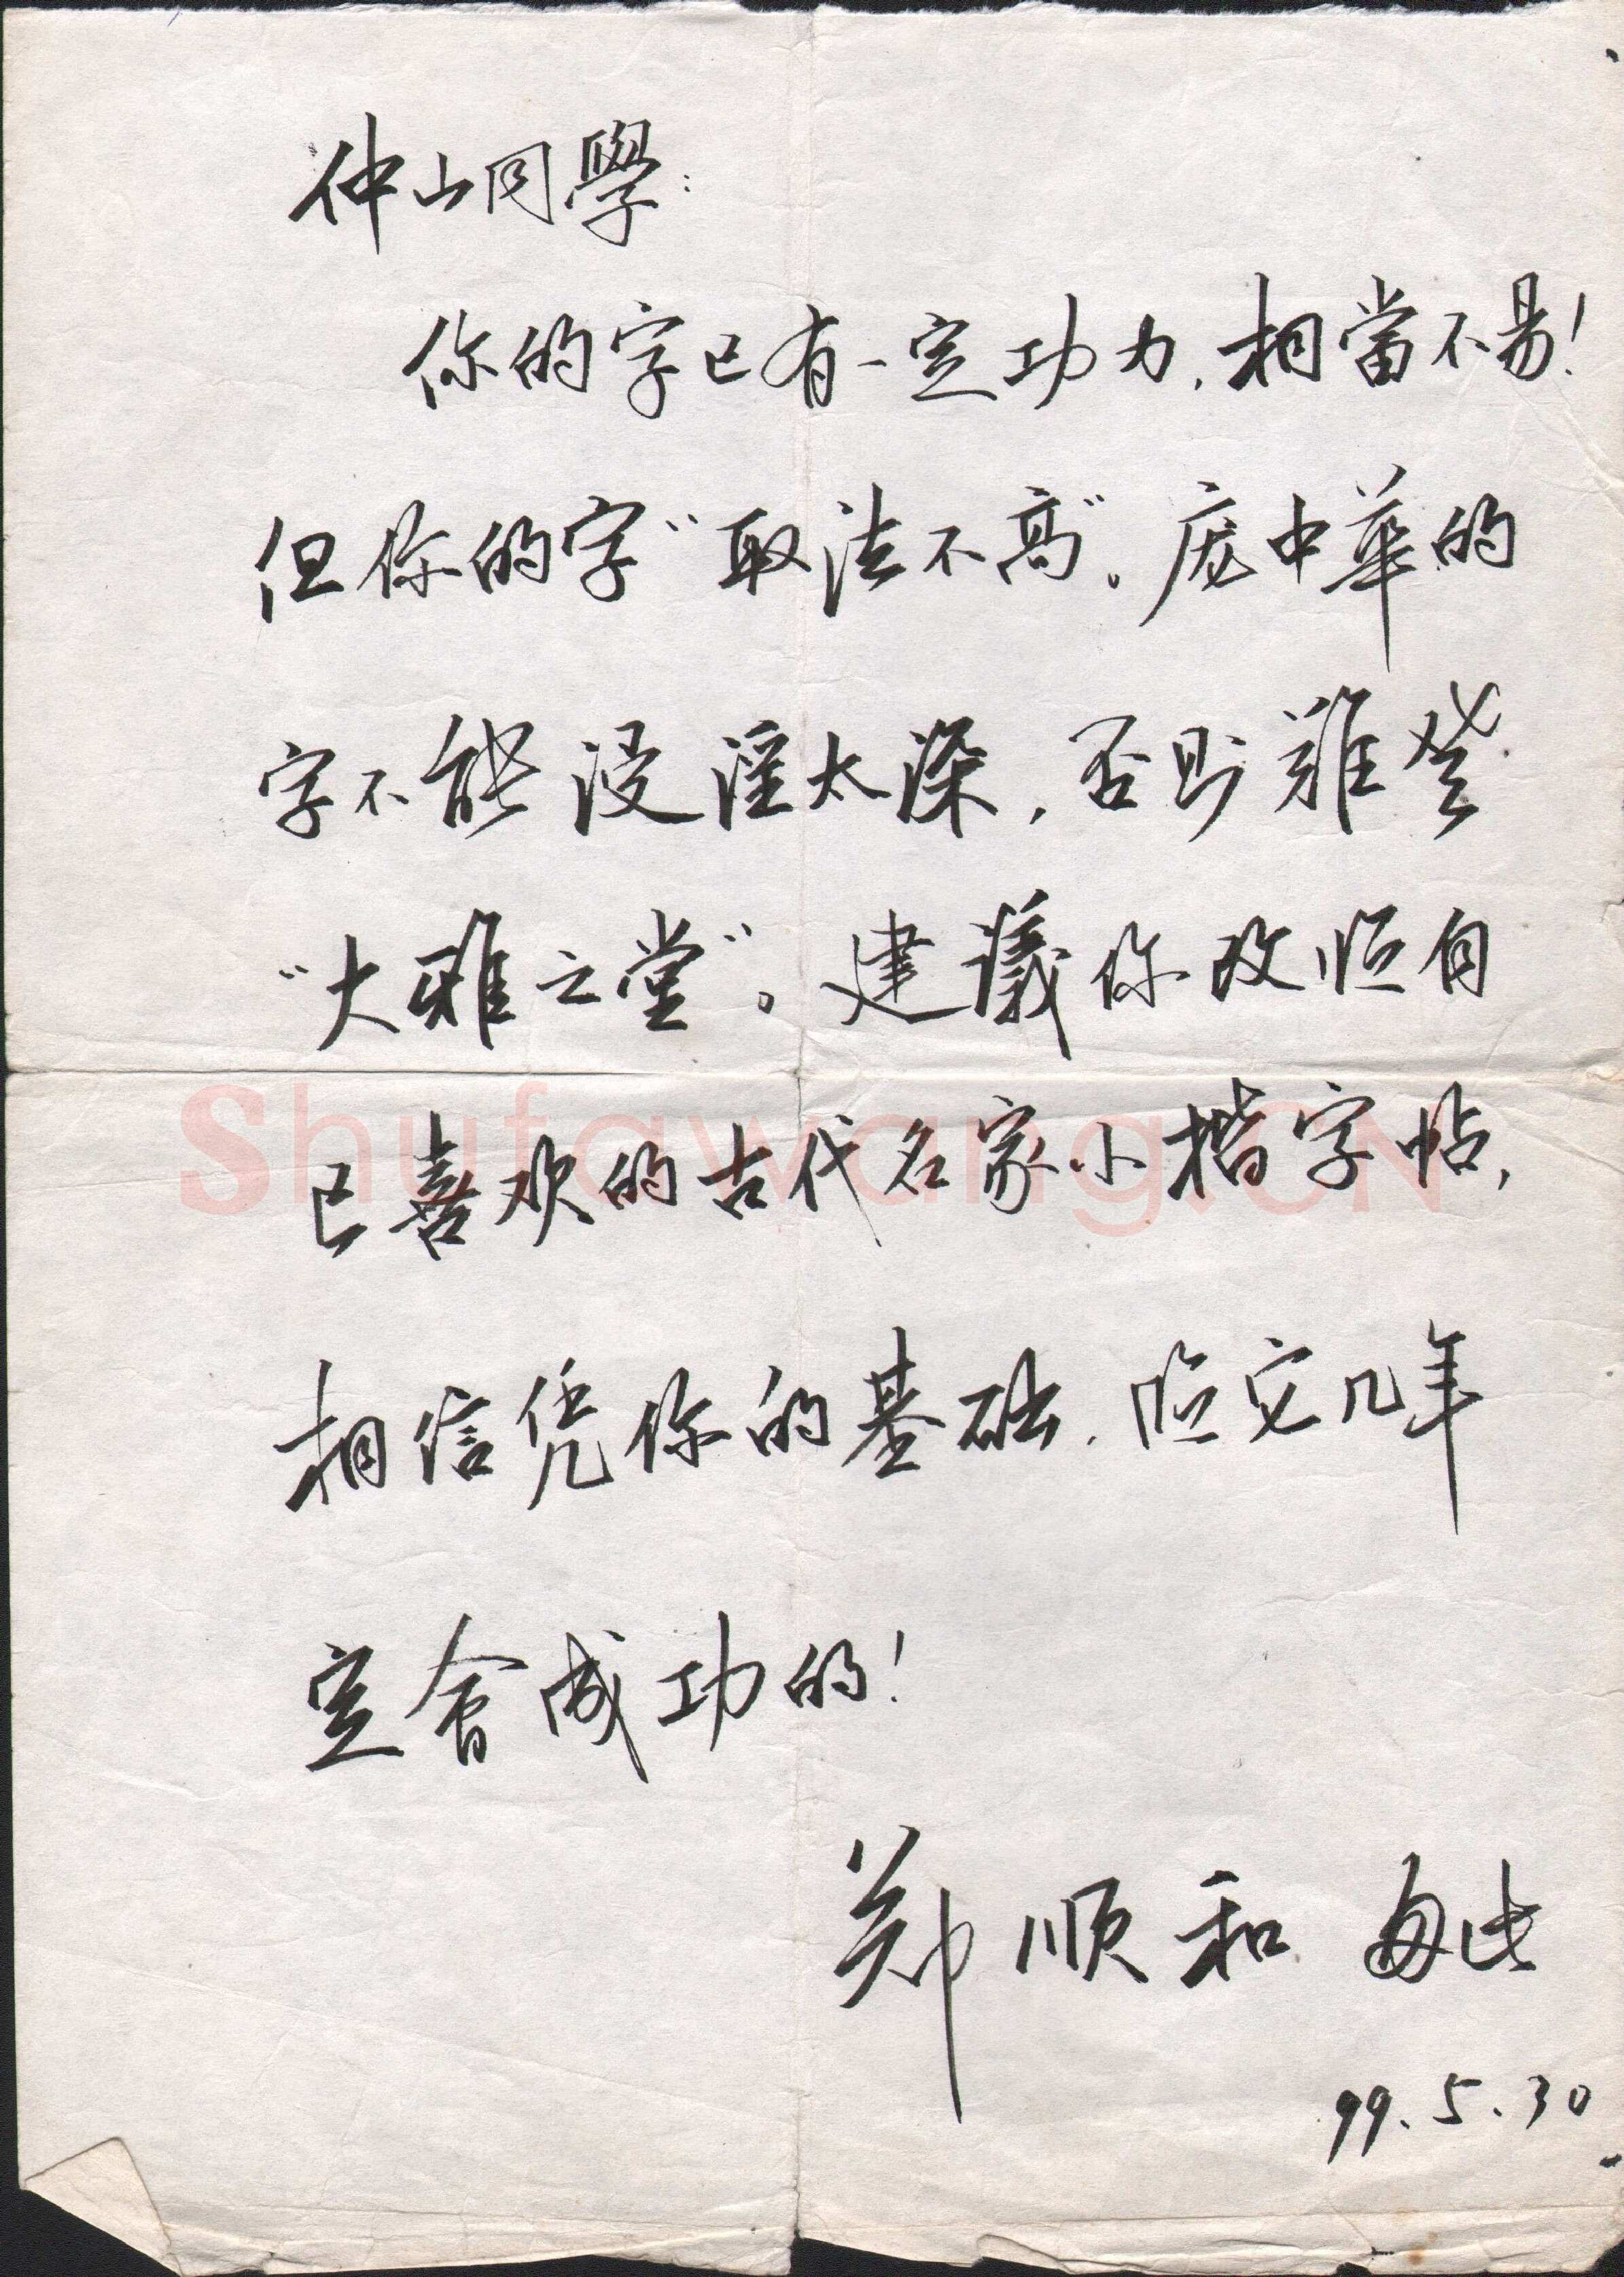 仲山同學：
你的字已有一定功力，相當不易！
但你的字“取法不高”。庞中華的
字不能浸淫太深，否则難登
“大雅之堂”。建議你改临自
己喜欢的古代名家小楷字帖，
Shufawang.CN
相信凭你的基础，临它几年
定會成功的！
郑顺和
99.5.30